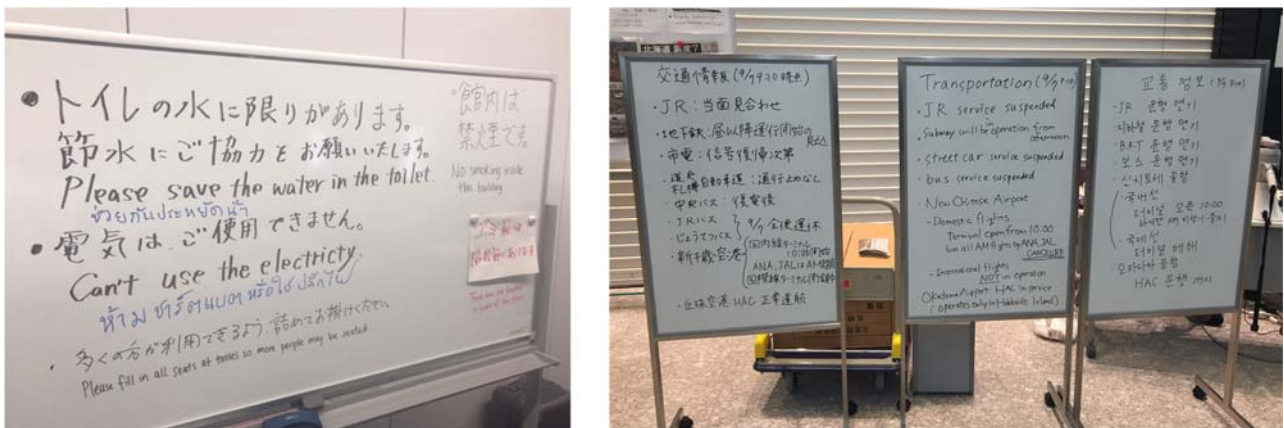 • トイレの水に限りがあります。
節水にご協力をお願いいたします。
Please save the water in the toilet.
ช่วยกันประหยัดน้ำ
• 電気は、ご使用できません。
Can't use the electricty
ห้าม ชาร์ตแบต หรือใช้ ปลั๊กไฟ
・多くの方が利用できるよう、詰めてお掛けください
Please fill in all seats at tables so more people may be seated.
館内は
禁煙です。
No smoking inside
this building
交通情報 (9/7 9:30時点)
・JR:当面見合わせ
・地下鉄:昼以降運行開始の
見込
・市電:信号復帰次第
札樽自動車道:通行止めなし
・中央バス:復電後
・JRバス
・じょうてつバス
9/7 全便運休
・新千歳空港
国内線ターミナル
10:00開始
ANA, JALは AM
国際線ターミナル
・丘珠空港 HAC 正常運航
Transportation
・JR service suspended
・Subway will be in operation from
afternoon
・street car service suspended
・bus service suspended
・New Chitose Airport
-Domestic flights
Terminal open from 10:00
but all AM flights by ANA, JAL
CANCELLED
-International flights
NOT in operation
Okadama Airport HAC in service
(operates only in Hokkaido Island)
교통 정보
・JR 운행 연기
・지하철 운행 연기
・BRT 운행 연기
・버스 운행 연기
・신치토세 공항
국내선
터미널 오픈 10:00
국제선
터미널 폐쇄
오카다마 공항
HAC 운행 개시